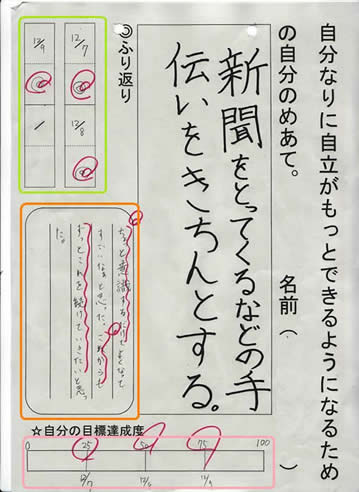 自分なりに自立がもっとできるようになるため
の自分のめあて。
名前（　　　）
新聞をとってくるなどの手
伝いをきちんとする。
◎ふり返り
12/7
12/8
12/9
/
ちょっと意識するだけでよくなって
すごいなぁと思った。これからも
ずっとこれを続けていきたいと思っ
た。
☆自分の目標達成度
0 25 50 75 100
12/7